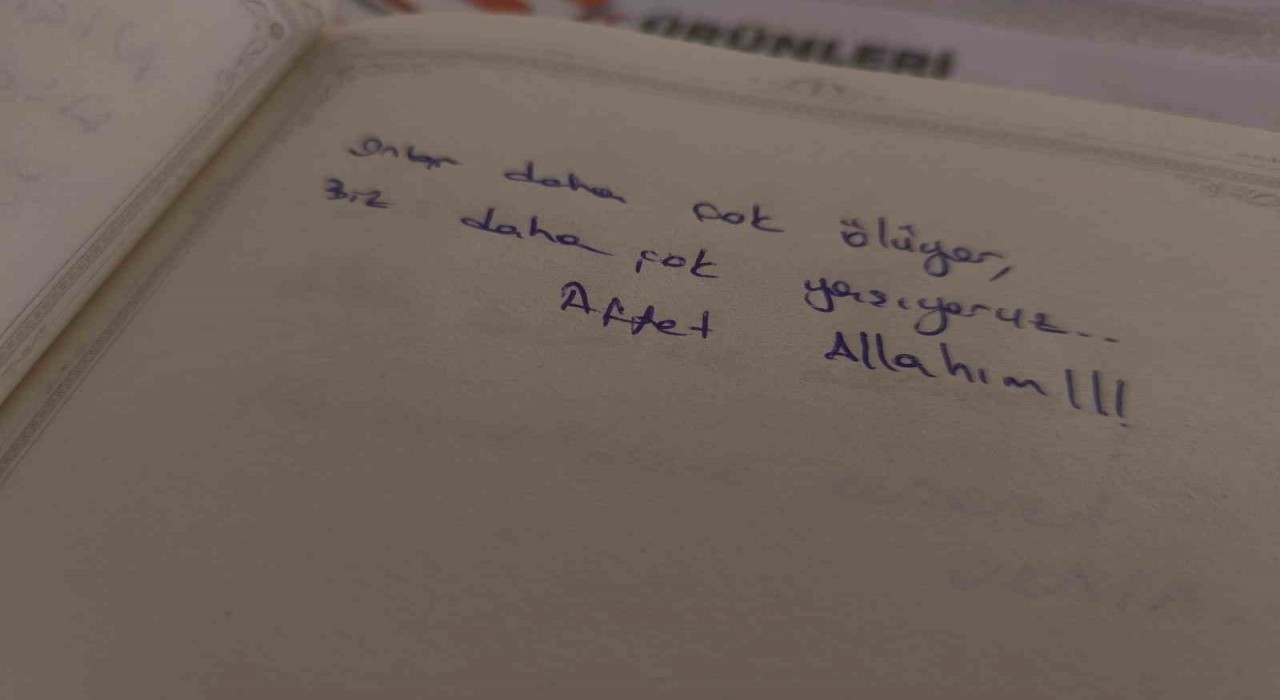 ÜRÜNLERİ
onlar daha çok ölüyor,
Biz daha çok yaşıyoruz...
Affet Allahım!!!